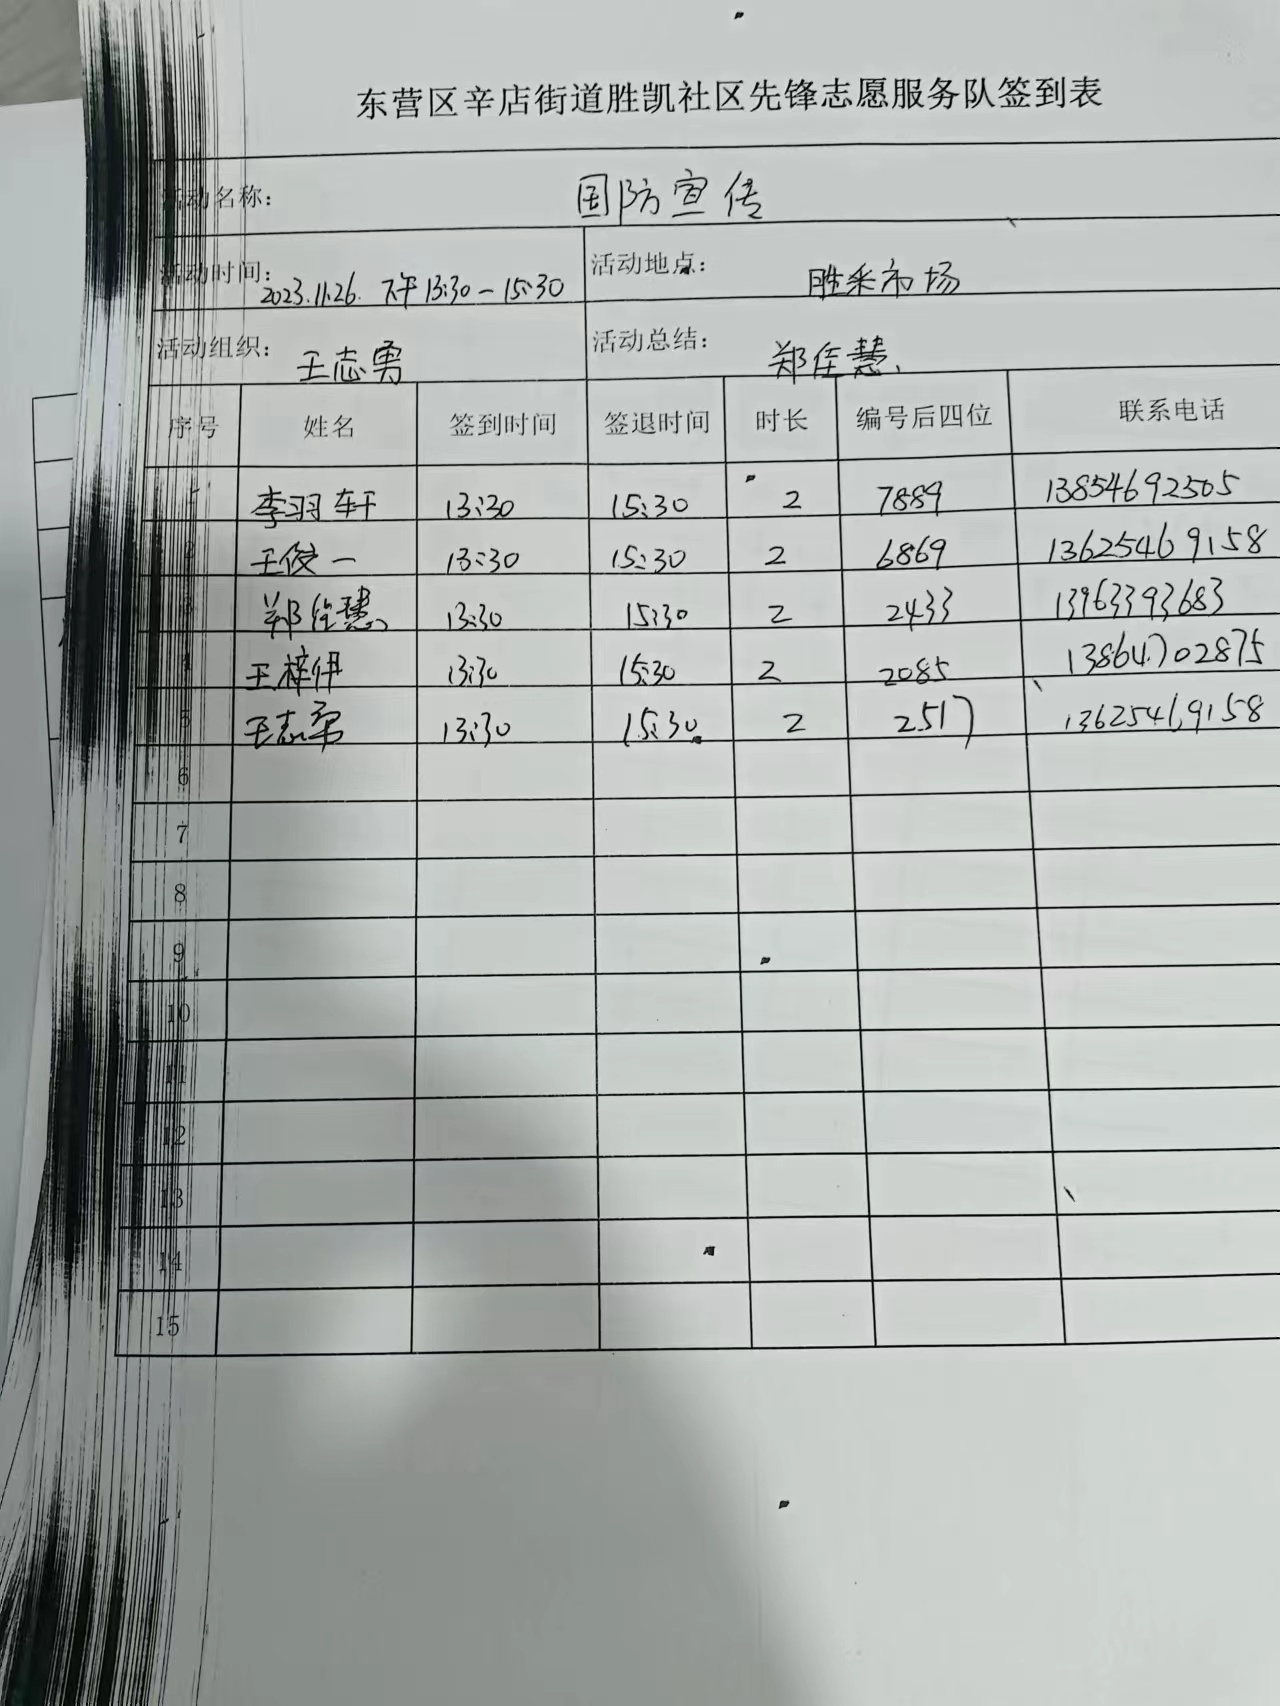 东营区辛店街道胜凯社区先锋志愿服务队签到表
活动名称： 国防宣传
活动时间： 2023.11.26. 下午 13:30-15:30 活动地点： 胜采市场
活动组织： 王志勇 活动总结： 郑佳慧.
序号 姓名 签到时间 签退时间 时长 编号后四位 联系电话
李羽轩 13:30 15:30 2 7889 13854692505
2 王俊一 13:30 15:30 2 6869 13625469158
3 郑佳慧 13:30 15:30 2 2433 13963393683
4 王梓伊 13:30 15:30 2 2085 13864702875
5 王志勇 13:30 15:30 2 2517 13625469158
6
7
8
9
10
11
12
13
14
15